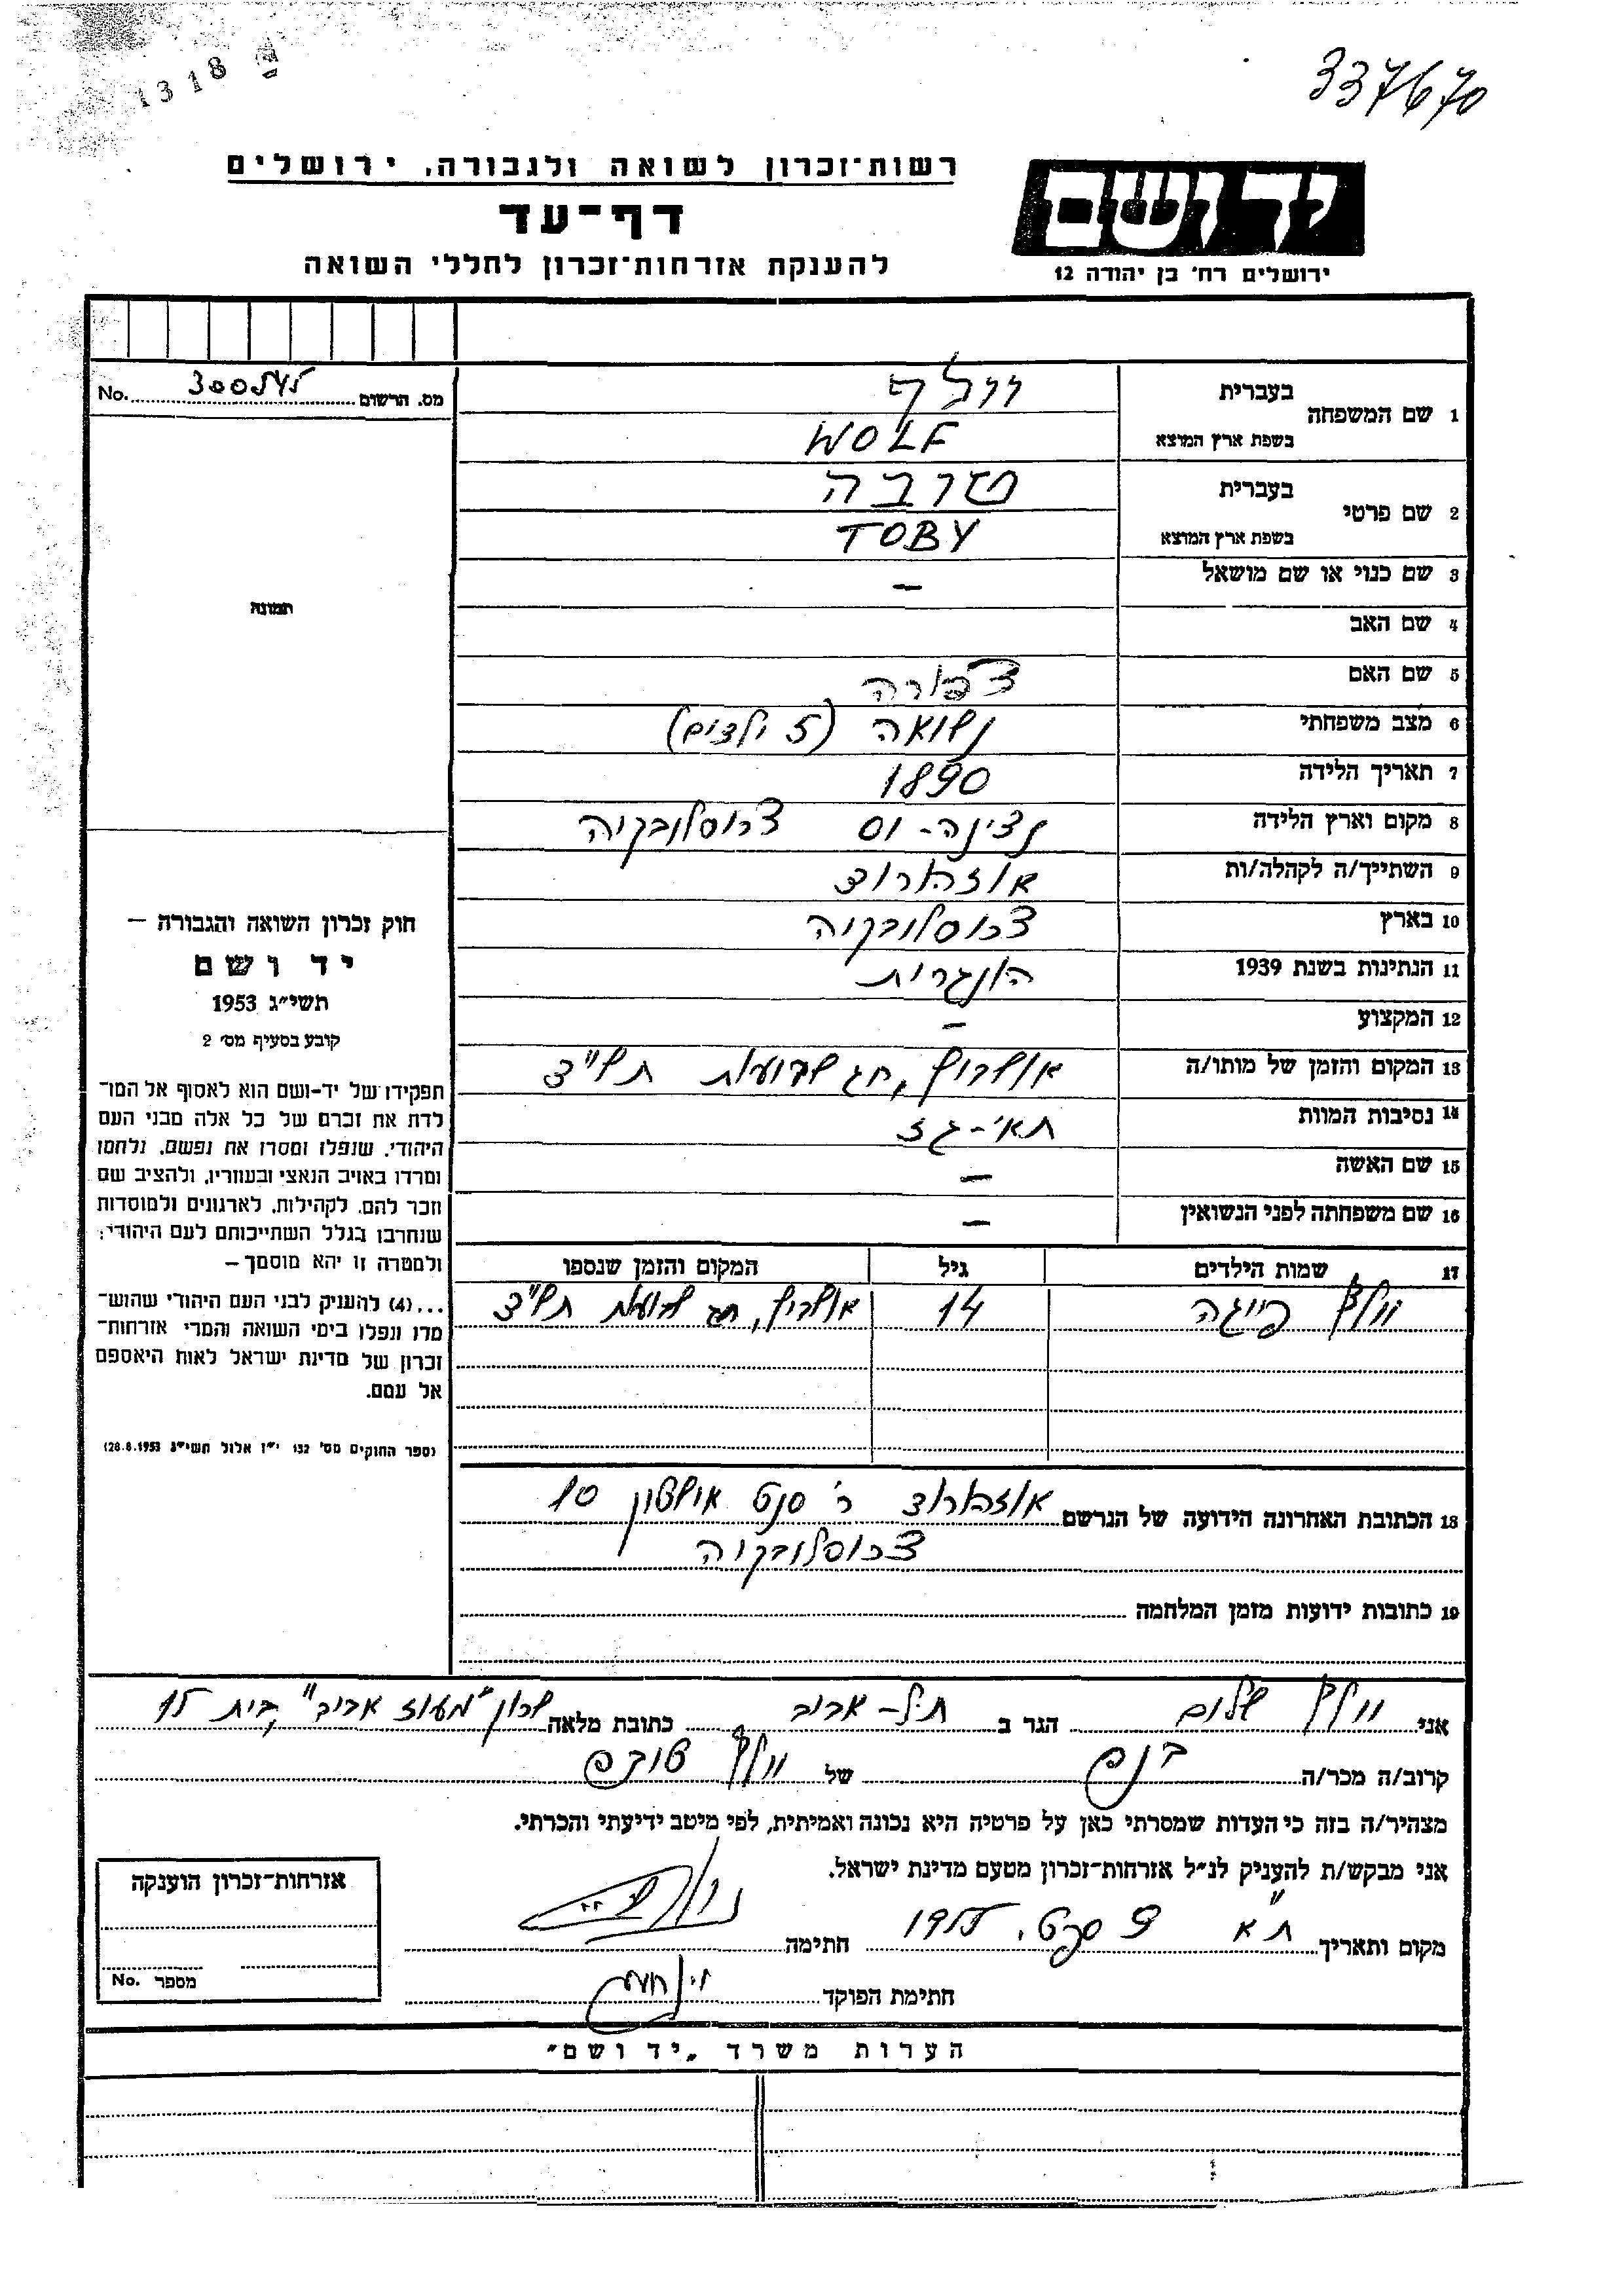 1318
337670
רשות־זכרון לשואה ולגבורה, ירושלים
יד ושם
דף־עד
להענקת אזרחות־זכרון לחללי השואה
ירושלים רח' בן יהודה 12
מס. הרשום No.
1 שם המשפחה בעברית וולף
בשפת ארץ המוצא WOLF
2 שם פרטי בעברית טובה
בשפת ארץ המוצא TOBY
3 שם כנוי או שם מושאל –
4 שם האב
5 שם האם צפורה
6 מצב משפחתי נשואה (5 ילדים)
7 תאריך הלידה 1890
8 מקום וארץ הלידה צ'כוסלובקיה
9 השתייך/ה לקהלה/ות אוזהורוד
10 בארץ צכוסלובקיה
11 הנתינות בשנת 1939 הונגרית
12 המקצוע –
13 המקום והזמן של מותו/ה אושויץ, חג שבועות תש"ד
14 נסיבות המוות תאי-גז
15 שם האשה –
16 שם משפחתה לפני הנשואין –
17 שמות הילדים גיל המקום והזמן שנספו
וולף פייגה 14 אושויץ, חג שבועות תש"ד
18 הכתובת האחרונה הידועה של הנרשם אוזהורוד ר' סנט 10
צכוסלובקיה
19 כתובות ידועות מזמן המלחמה
תמונה
חוק זכרון השואה והגבורה –
יד ושם
תשי"ג 1953
קובע בסעיף מס' 2
תפקידו של יד-ושם הוא לאסוף אל המו־
לדת את זכרם של כל אלה מבני העם
היהודי, שנפלו ומסרו את נפשם, נלחמו
ומרדו באויב הנאצי ובעוזריו, ולהציב שם
וזכר להם, לקהילות, לארגונים ולמוסדות
שנחרבו בגלל השתייכותם לעם היהודי;
ולמטרה זו יהא מוסמך –
...(4) להעניק לבני העם היהודי שהוש־
מדו ונפלו בימי השואה והמרי אזרחות־
זכרון של מדינת ישראל לאות היאספם
אל עמם.
(ספר החוקים מס' 132 י"ז אלול תשי"ג 28.8.1953)
אני וולף שלום הגר ב תל-אביב כתובת מלאה שכון "מעוז אביב", בית 15
קרוב/ה מכר/ה בנם של וולף טובה
מצהיר/ה בזה כי העדות שמסרתי כאן על פרטיה היא נכונה ואמיתית, לפי מיטב ידיעתי והכרתי.
אני מבקש/ת להעניק לנ"ל אזרחות־זכרון מטעם מדינת ישראל.
מקום ותאריך ת"א ספט. חתימה
חתימת הפוקד
אזרחות־זכרון הוענקה
מספר No.
הערות משרד „יד ושם"